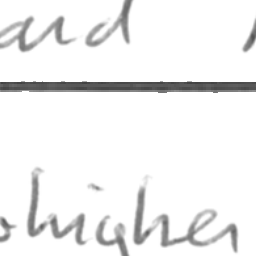 and
higher